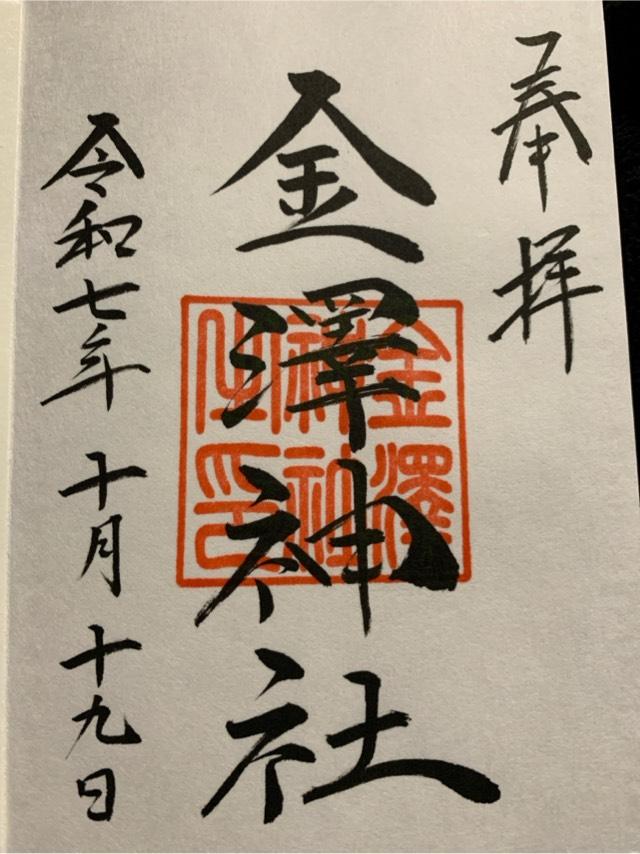 奉拝
金澤神社
金澤
神社
之印
令和七年 十月 十九日